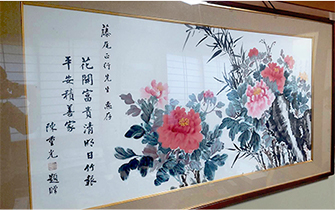 藤尾正行先生惠存
花開富貴清明日竹報
平安積善家
陳重光
題贈